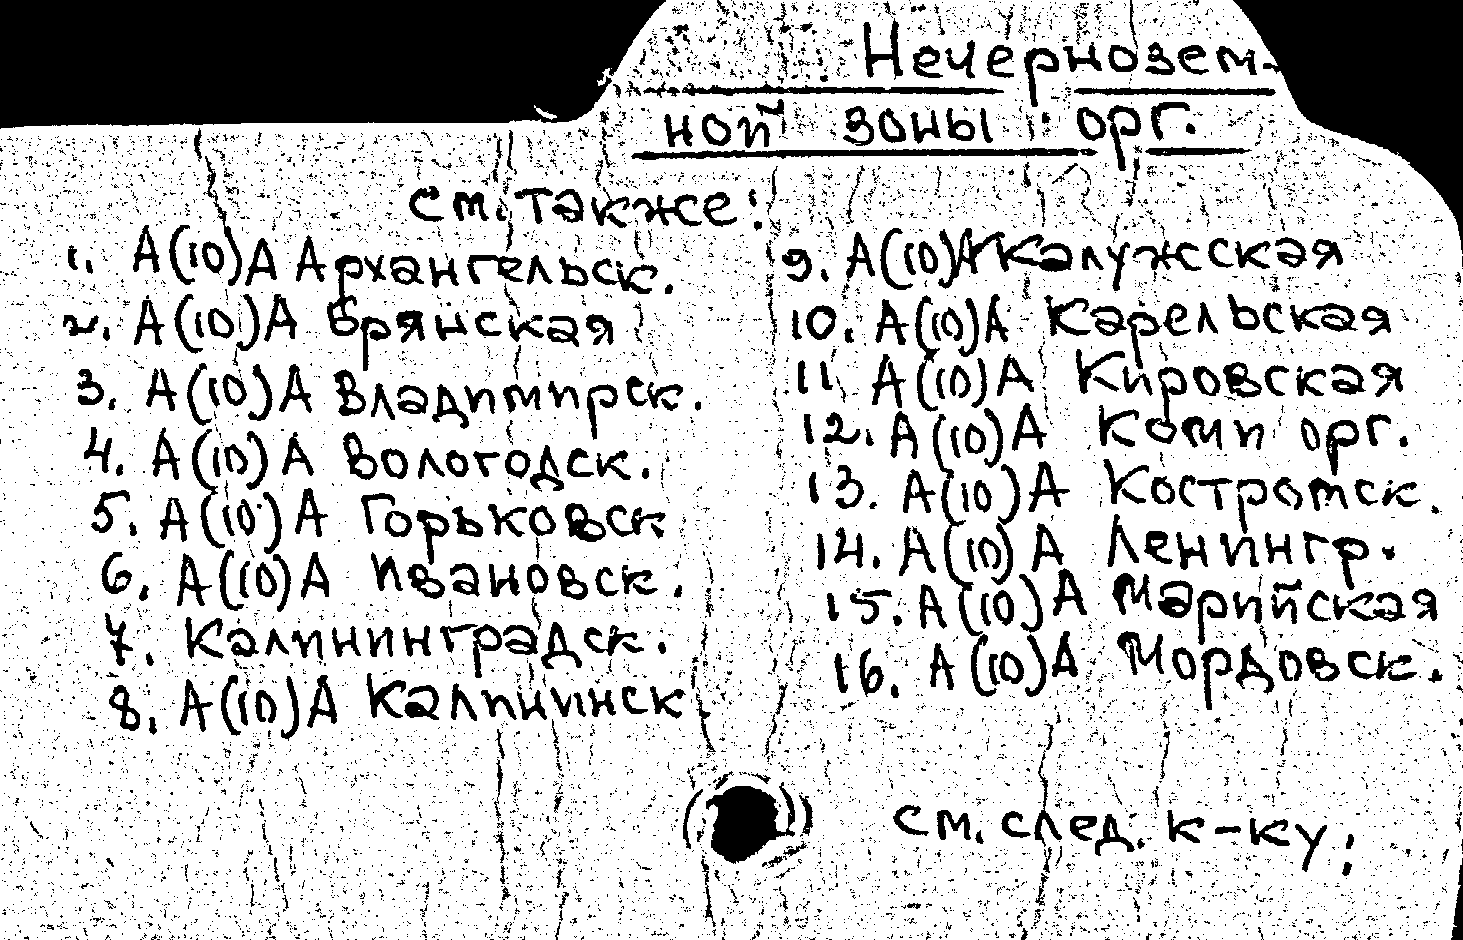 Нечернозем-
ной зоны орг.
см. также:
1. А(10)А Архангельск.
2. А(10)А Брянская
3. А(10)А Владимирск.
4. А(10)А Вологодск.
5. А(10)А Горьковск
6. А(10)А Ивановск.
7. Калининградск.
8. А(10)А Калининск.
9. А(10)А Калужская
10. А(10)А Карельская
11. А(10)А Кировская
12. А(10)А Коми орг.
13. А(10)А Костромск.
14. А(10)А Ленингр.
15. А(10)А Марийская
16. А(10)А Мордовск.
см. след. к-ку: